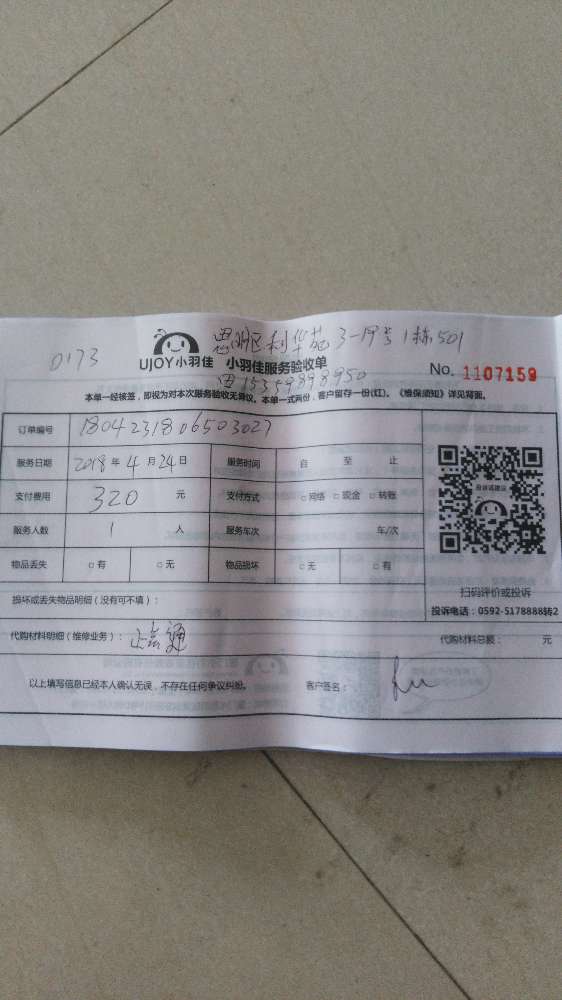 思明区利华苑3-19号1栋501
0173
UJOY小羽佳 小羽佳服务验收单
15359898950
No. 1107159
本单一经核签，即视为对本次服务验收无异议。本单一式两份，客户留存一份(红)。《维保须知》详见背面。
订单编号 1804231806503027
服务日期 2018年4月24日 服务时间 自 至 止
支付费用 320 元 支付方式 □网络 □现金 □转账
投诉或建议
服务人数 1 人 服务车次 车/次
物品丢失 □有 □无 物品损坏 □无 □有
扫码评价或投诉
损坏或丢失物品明细（没有可不填）：
投诉电话：0592-5178888转2
代购材料明细（维修业务）： 代购材料总额： 元
以上填写信息已经本人确认无误，不存在任何争议纠纷。 客户签名：